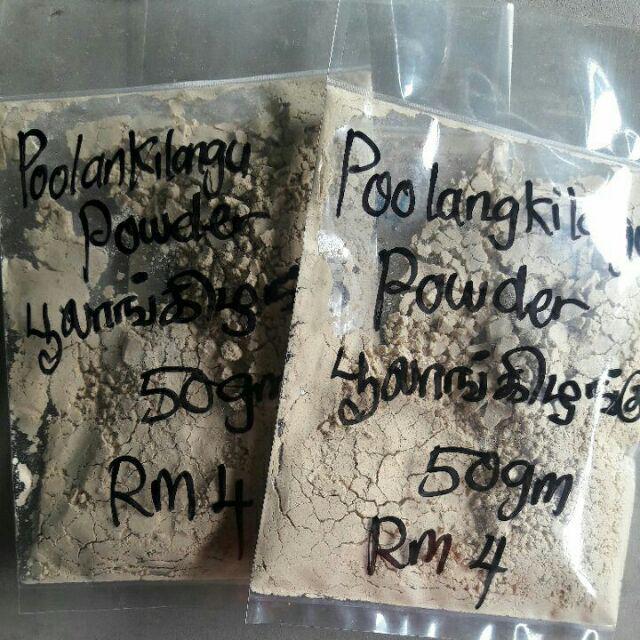 Poolankilangu
Powder
50gm
RM 4
Poolangkila
Powder
பூலாங்கிழங்
50gm
Rm 4